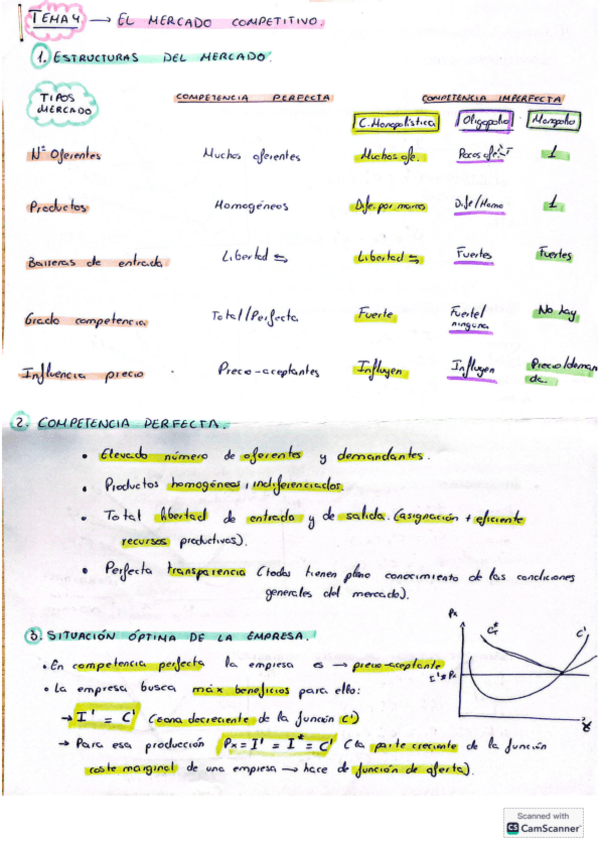 TEMA 4 → EL MERCADO COMPETITIVO.
1. ESTRUCTURAS DEL MERCADO.
TIPOS MERCADO
COMPETENCIA PERFECTA
COMPETENCIA IMPERFECTA
C. Monopolística
Oligopolio
Monopolio
Nº Oferentes
Muchos oferentes
Muchos ofe.
Pocos ofe
1
Productos
Homogéneos
Dife. por marcas
Dife/Homo
1
Barreras de entrada
Libertad ⇆
Libertad ⇆
Fuertes
Fuertes
Grado competencia
Total/Perfecta
Fuerte
Fuerte/
ninguna
No hay
Influencia precio
Precio-aceptantes
Influyen
Influyen
Precio/deman
da.
2. COMPETENCIA PERFECTA.
• Elevado número de oferentes y demandantes.
• Productos homogéneos, indiferenciados.
• Total libertad de entrada y de salida. (asignación + eficiente
recursos productivos).
• Perfecta transparencia (todos tienen pleno conocimiento de las condiciones
generales del mercado).
3. SITUACIÓN ÓPTIMA DE LA EMPRESA.
• En competencia perfecta la empresa es → precio-aceptante
• La empresa busca máx beneficios para ello:
→ I' = C' (zona decreciente de la función C')
→ Para esa producción Px = I' = I* = C' (la parte creciente de la función
coste marginal de una empresa → hace de función de oferta).
Px
C'
Scanned with
CS CamScanner